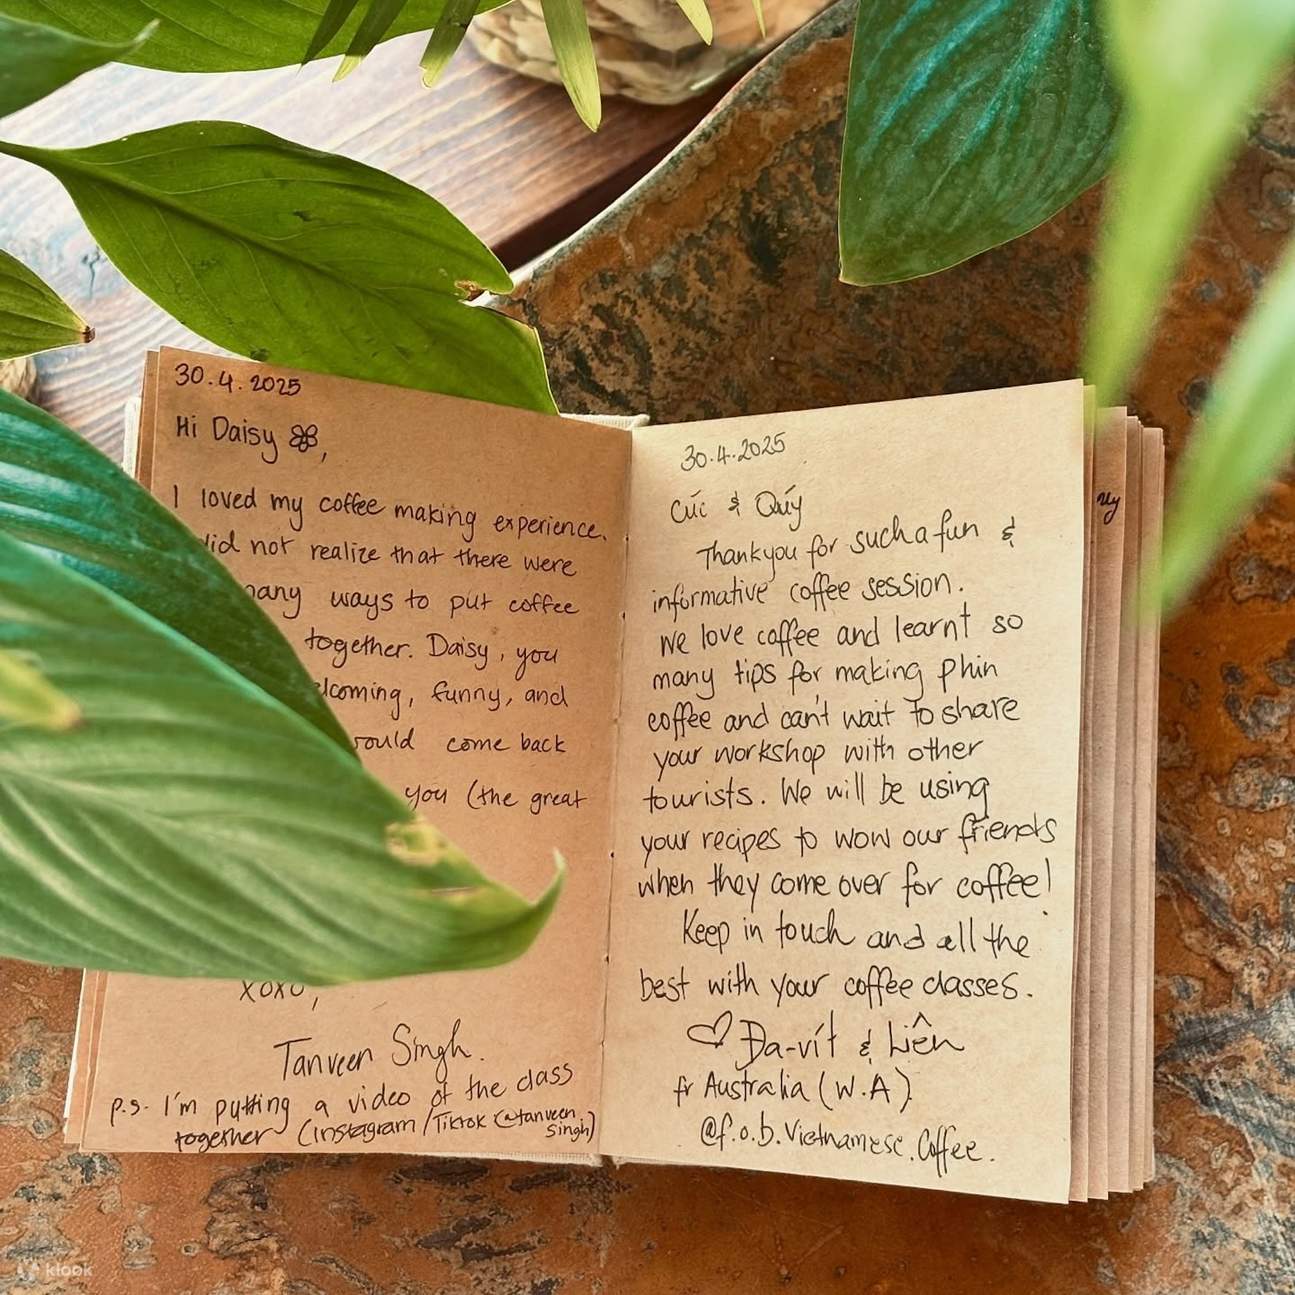 30.4.2025
Hi Daisy,
I loved my coffee making experience.
did not realize that there were
many ways to put coffee
together. Daisy, you
lcoming, funny, and
would come back
you (the great
xoxo,
Tanveen Singh.
p.s. I'm putting a video of the class
together (instagram/Tiktok @tanveen
singh)
30.4.2025
Cúc & Quý
Thankyou for such a fun &
informative coffee session.
We love coffee and learnt so
many tips for making phin
coffee and can't wait to share
your workshop with other
tourists. We will be using
your recipes to wow our friends
when they come over for coffee!
Keep in touch and all the
best with your coffee classes.
Đa-vít & Liên
fr Australia (W.A).
@f.o.b.Vietnamese.Coffee.
klook